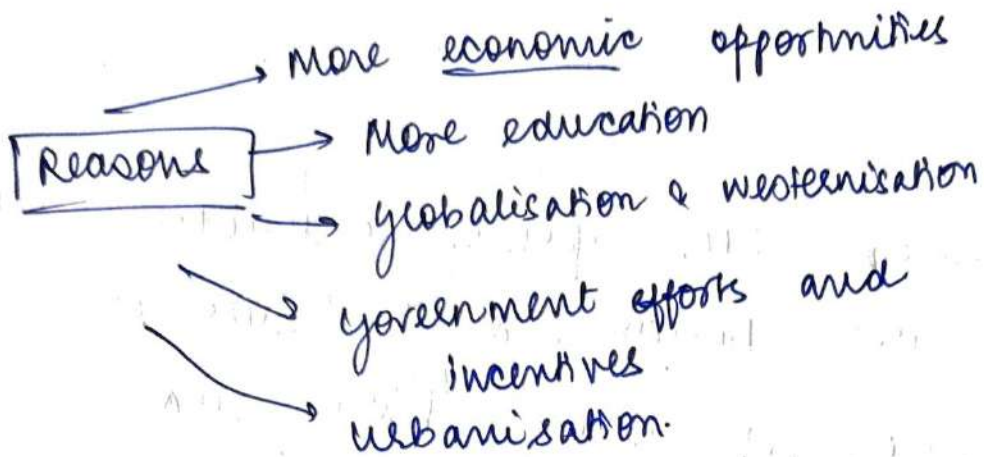 More economic opportunities
Reasons
More education
globalisation & westernisation
government efforts and
incentives
urbanisation.